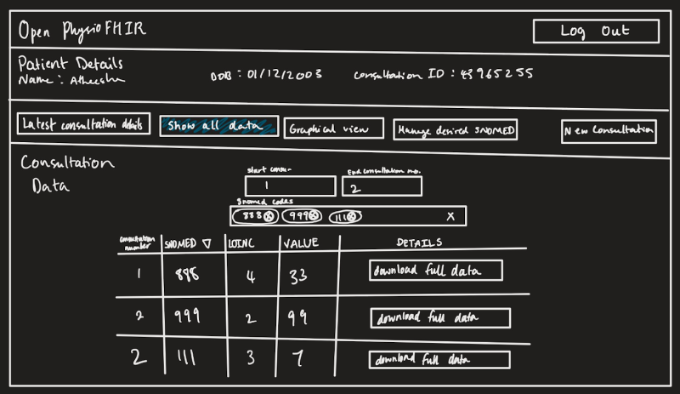 Open PhysioFHIR
Log Out
Patient Details
Name: Atheesha DOB: 01/12/2003 Consultation ID: 43965255
Latest consultation details
Show all data
Graphical view
Manage desired SNOMED
New Consultation
Consultation
Data
Start
1
End consultation no.
2
Snomed codes
888 ⊗ 999 ⊗ 111 ⊗ X
Consultation
number SNOMED ▽ LOINC VALUE DETAILS
1 888 4 33 download full data
2 999 2 99 download full data
2 111 3 7 download full data